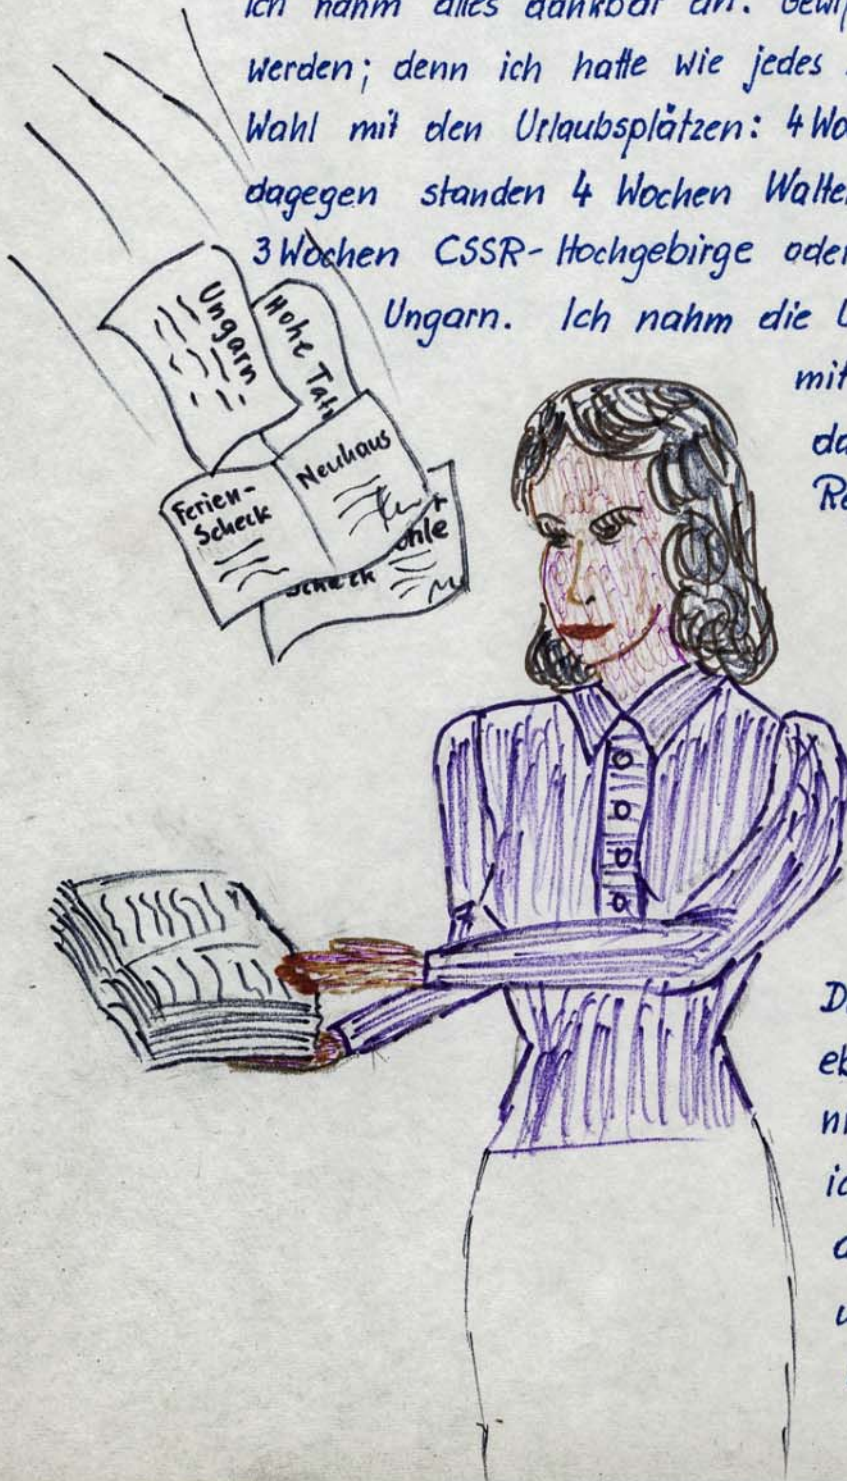 Ich nahm alles dankbar an. Gewiß
werden; denn ich hatte wie jedes
Wahl mit den Urlaubsplätzen: 4 Wo
dagegen standen 4 Wochen Walte
3 Wochen CSSR-Hochgebirge oder
Ungarn. Ich nahm die U
mit
da
Re
Ungarn
Hohe Tatr
Neuhaus
Ferien-
Scheck
ohle
Scheck
D
eb
ic